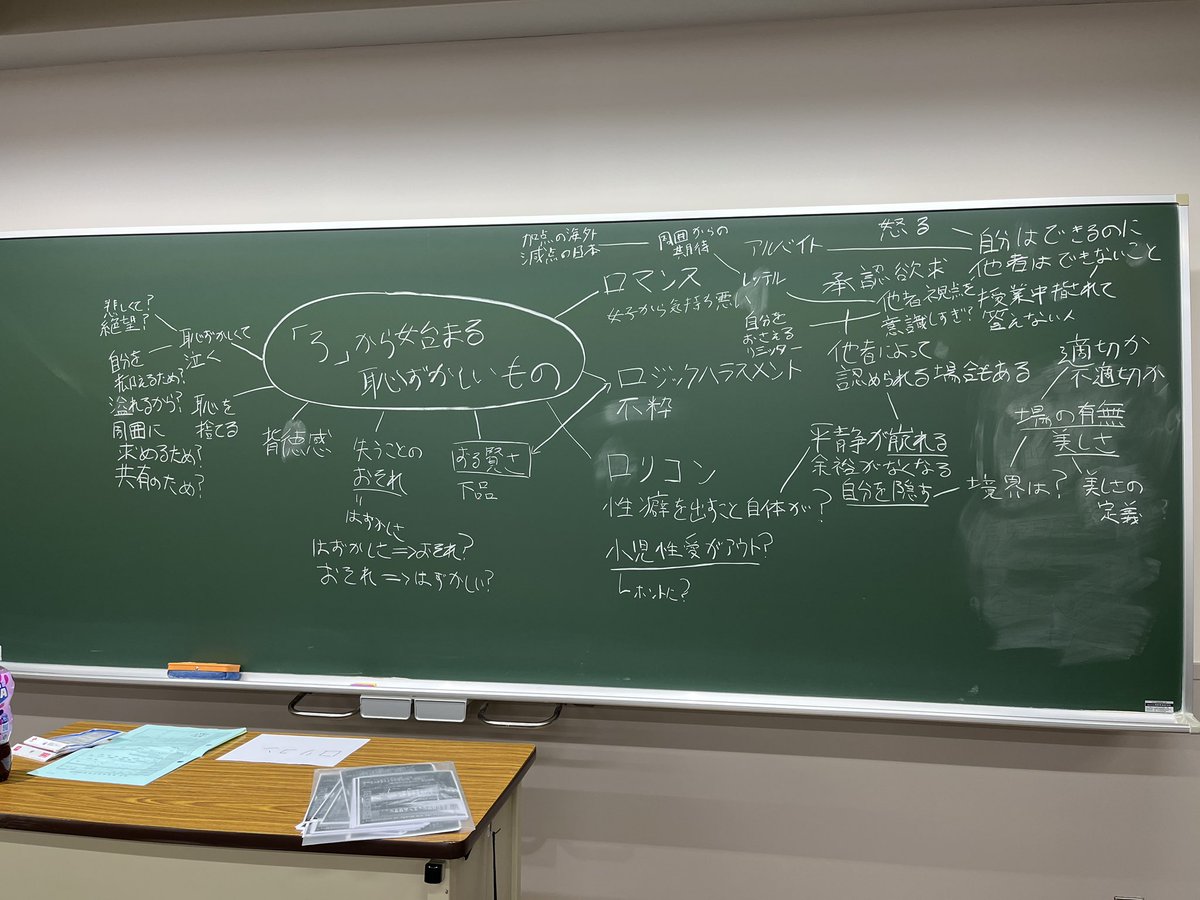 「ろ」から始まる
恥ずかしいもの
悲しくて?
絶望?
恥ずかしくて
泣く
自分を
抑えるため?
溢れるから?
周囲に
求めるため?
共有のため?
恥を
捨てる
背徳感
失うことの
おそれ
=
はずかしさ
はずかしさ⇒おそれ?
おそれ⇒はずかしい?
ずる賢さ
下品
ロマンス
女子から気持ち悪い
ロジックハラスメント
不粋
ロリコン
性癖を出すこと自体が?
小児性愛がアウト?
ホントに?
加点の海外
減点の日本
周囲からの
期待
レッテル
自分を
おさえる
リミッター
アルバイト
怒る
自分はできるのに
他者はできないこと
承認欲求
他者視点を
意識しすぎ?
授業中指されて
答えない人
他者によって
認められる場合もある
平静が崩れる
余裕がなくなる
自分を隠す
境界は?
場の有無
美しさ
適切か
不適切か
美しさの
定義
ロリコン